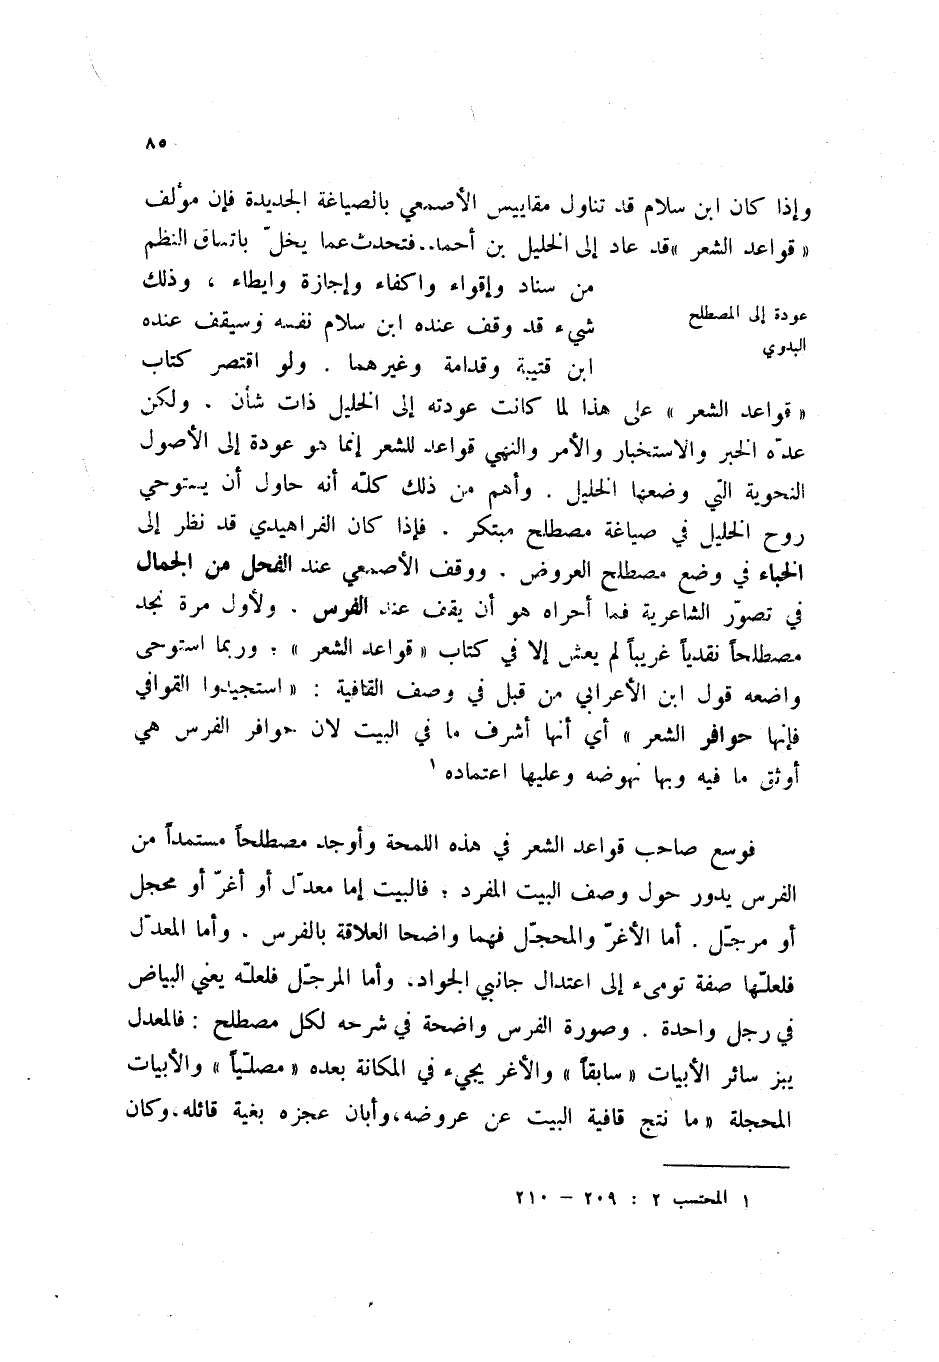 ٨٥
وإذا كان ابن سلام قد تناول مقاييس الأصمعي بالصياغة الجديدة فإن مؤلف
« قواعد الشعر » قد عاد إلى الخليل بن أحمد.. فتحدث عما يخلّ باتساق النظم
من سناد وإقواء واكفاء وإجازة وايطاء ، وذلك
شيء قد وقف عنده ابن سلام نفسه وسيقف عنده
ابن قتيبة وقدامة وغيرهما . ولو اقتصر كتاب
عودة إلى المصطلح
البدوي
« قواعد الشعر » على هذا لما كانت عودته إلى الخليل ذات شأن . ولكن
عدّه الخبر والاستخبار والأمر والنهي قواعد للشعر إنما هو عودة إلى الأصول
النحوية التي وضعها الخليل . وأهم من ذلك كلّه أنه حاول أن يستوحي
روح الخليل في صياغة مصطلح مبتكر . فإذا كان الفراهيدي قد نظر إلى
الخباء في وضع مصطلح العروض . ووقف الأصمعي عند الفحل من الجمال
في تصوّر الشاعرية فما أحراه هو أن يقف عند الفرس . ولأول مرة نجد
مصطلحاً نقدياً غريباً لم يعش إلا في كتاب « قواعد الشعر » ؛ وربما استوحى
واضعه قول ابن الأعرابي من قبل في وصف القافية : « استجيدوا القوافي
فإنها حوافر الشعر » أي أنها أشرف ما في البيت لان حوافر الفرس هي
أوثق ما فيه وبها نهوضه وعليها اعتماده ١
فوسع صاحب قواعد الشعر في هذه اللمحة وأوجد مصطلحاً مستمداً من
الفرس يدور حول وصف البيت المفرد ؛ فالبيت إما معدّل أو أغرّ أو محجل
أو مرجّل . أما الأغرّ والمحجّل فهما واضحا العلاقة بالفرس . وأما المعدّل
فلعلّها صفة تومىء إلى اعتدال جانبي الجواد. وأما المرجّل فلعلّه يعني البياض
في رجل واحدة . وصورة الفرس واضحة في شرحه لكل مصطلح : فالمعدل
يبز سائر الأبيات « سابقاً » والأغر يجيء في المكانة بعده « مصلّياً » والأبيات
المحجلة « ما نتج قافية البيت عن عروضه، وأبان عجزه بغية قائله، وكان
١ المحتسب ٢ : ٢٠٩ – ٢١٠